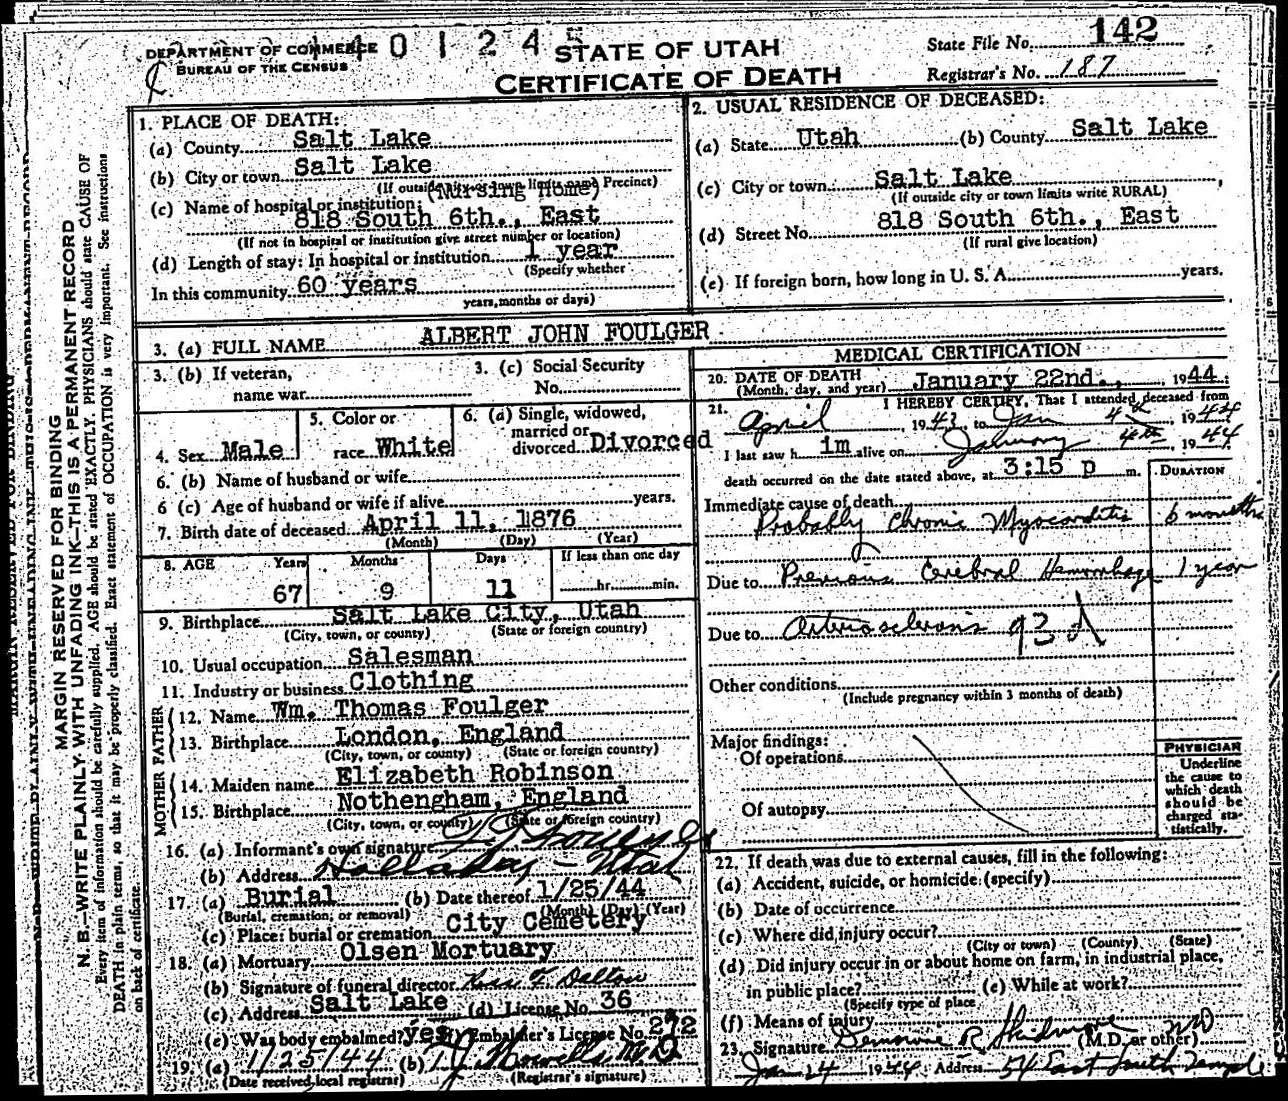 DEPARTMENT OF COMMERCE
BUREAU OF THE CENSUS
4 0 1 2 4
STATE OF UTAH
CERTIFICATE OF DEATH
State File No. 142
Registrar's No. 187
1. PLACE OF DEATH:
(a) County Salt Lake
(b) City or town Salt Lake
(If outside city or town limits name Precinct)
(c) Name of hospital or institution: (Nursing Home)
818 South 6th., East
(If not in hospital or institution give street number or location)
(d) Length of stay: In hospital or institution 1 year
(Specify whether
In this community 60 years
years, months or days)
2. USUAL RESIDENCE OF DECEASED:
(a) State Utah (b) County Salt Lake
(c) City or town Salt Lake
(If outside city or town limits write RURAL)
(d) Street No. 818 South 6th., East
(If rural give location)
(e) If foreign born, how long in U. S. A. years.
3. (a) FULL NAME ALBERT JOHN FOULGER
3. (b) If veteran,
name war
3. (c) Social Security
No.
4. Sex Male
5. Color or
race White
6. (a) Single, widowed,
married or
divorced Divorced
6. (b) Name of husband or wife
6 (c) Age of husband or wife if alive years.
7. Birth date of deceased April 11, 1876
(Month) (Day) (Year)
8. AGE Years Months Days If less than one day
67 9 11 hr. min.
9. Birthplace Salt Lake City, Utah
(City, town, or county) (State or foreign country)
10. Usual occupation Salesman
11. Industry or business Clothing
FATHER
12. Name Wm. Thomas Foulger
13. Birthplace London, England
(City, town, or county) (State or foreign country)
MOTHER
14. Maiden name Elizabeth Robinson
15. Birthplace Nothengham, England
(City, town, or county) (State or foreign country)
16. (a) Informant's own signature
(b) Address Holladay - Utah
17. (a) Burial (b) Date thereof 1/25/44
(Burial, cremation, or removal) (Month) (Day) (Year)
(c) Place: burial or cremation City Cemetery
18. (a) Mortuary Olsen Mortuary
(b) Signature of funeral director F. Dalton
(c) Address Salt Lake (d) License No. 36
(e) Was body embalmed? yes (f) Embalmer's License No. 272
19. (a) 1/25/44 (b) T. J. Howells M D
(Date received local registrar) (Registrar's signature)
MEDICAL CERTIFICATION
20. DATE OF DEATH
(Month, day, and year) January 22nd., 1944
21. I HEREBY CERTIFY, That I attended deceased from
April 1943, to Jan 4th 1944
I last saw h im alive on January 4th, 1944
death occurred on the date stated above, at 3:15 p m.
DURATION
Immediate cause of death
Probably Chronic Myocarditis 6 months
Due to Previous Cerebral Hemorrhage 1 year
Due to Arteriosclerosis 93 d
Other conditions
(Include pregnancy within 3 months of death)
Major findings:
Of operations
Of autopsy
PHYSICIAN
Underline
the cause to
which death
should be
charged sta-
tistically.
22. If death was due to external causes, fill in the following:
(a) Accident, suicide, or homicide (specify)
(b) Date of occurrence
(c) Where did injury occur?
(City or town) (County) (State)
(d) Did injury occur in or about home on farm, in industrial place,
in public place? (e) While at work?
(Specify type of place
(f) Means of injury
23. Signature R. Skidmore MD (M.D. or other)
Jan 24 1944 Address 54 East South Temple
MARGIN RESERVED FOR BINDING
N. B.—WRITE PLAINLY WITH UNFADING INK—THIS IS A PERMANENT RECORD
Every item of information should be carefully supplied. AGE should be stated EXACTLY. PHYSICIANS should state CAUSE OF
DEATH in plain terms, so that it may be properly classified. Exact statement of OCCUPATION is very important. See instructions
on back of certificate.